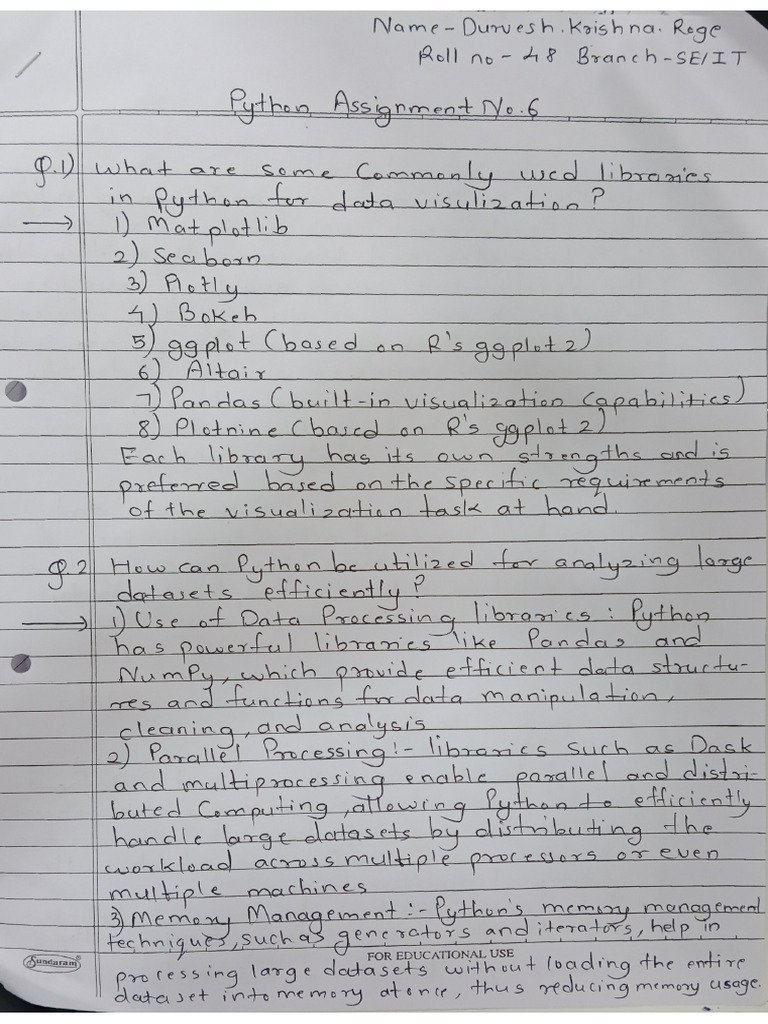 Name - Durvesh. Krishna. Roge
Roll no - 48 Branch - SE/IT
Python Assignment No. 6
Q.1) What are some Commonly used libraries
in Python for data visulization?
→ 1) Matplotlib
2) Seaborn
3) Plotly
4) Bokeh
5) ggplot (based on R's ggplot2)
6) Altair
7) Pandas (built-in visualization capabilities)
8) Plotnine (based on R's ggplot2)
Each library has its own strengths and is
preferred based on the specific requirements
of the visualization task at hand.
Q.2 How can Python be utilized for analyzing large
datasets efficiently?
→ 1) Use of Data Processing libraries : Python
has powerful libraries like Pandas and
NumPy, which provide efficient data structu-
res and functions for data manipulation,
cleaning, and analysis
2) Parallel Processing :- libraries such as Dask
and multiprocessing enable parallel and distri-
buted Computing, allowing Python to efficiently
handle large datasets by distributing the
workload across multiple processors or even
multiple machines
3) Memory Management :- Python's memory management
techniques, such as generators and iterators, help in
Sundaram FOR EDUCATIONAL USE
processing large datasets without loading the entire
dataset into memory at once, thus reducing memory usage.